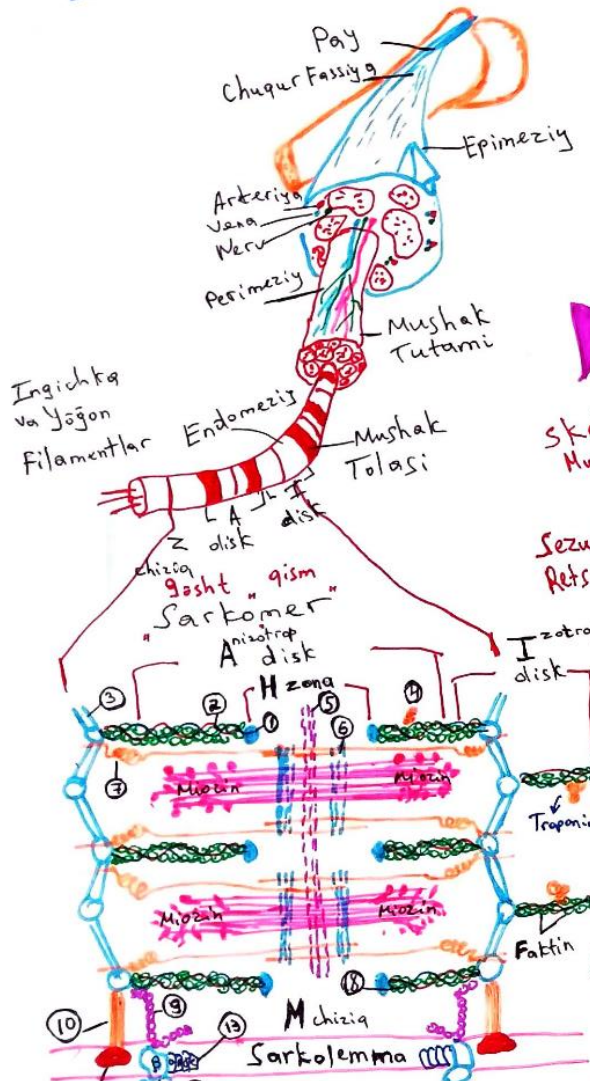 Pay
Chuqur Fassiya
Epimeziy
Arteriya
Vena
Nerv
Perimeziy
Mushak
Tutami
Ingichka
va Yöğon
Filamentlar
Endomeziy
Mushak
Tolasi
A
disk
I
disk
Z
chiziq
gösht „ qism
„Sarkomer"
Anizotrop
disk
Izotro
disk
H zona
3
2
1
5
4
6
7
Miozin
Miozin
Troponin
Miozin
Miozin
Faktin
18
10
9
M chiziq
13
Sarkolemma